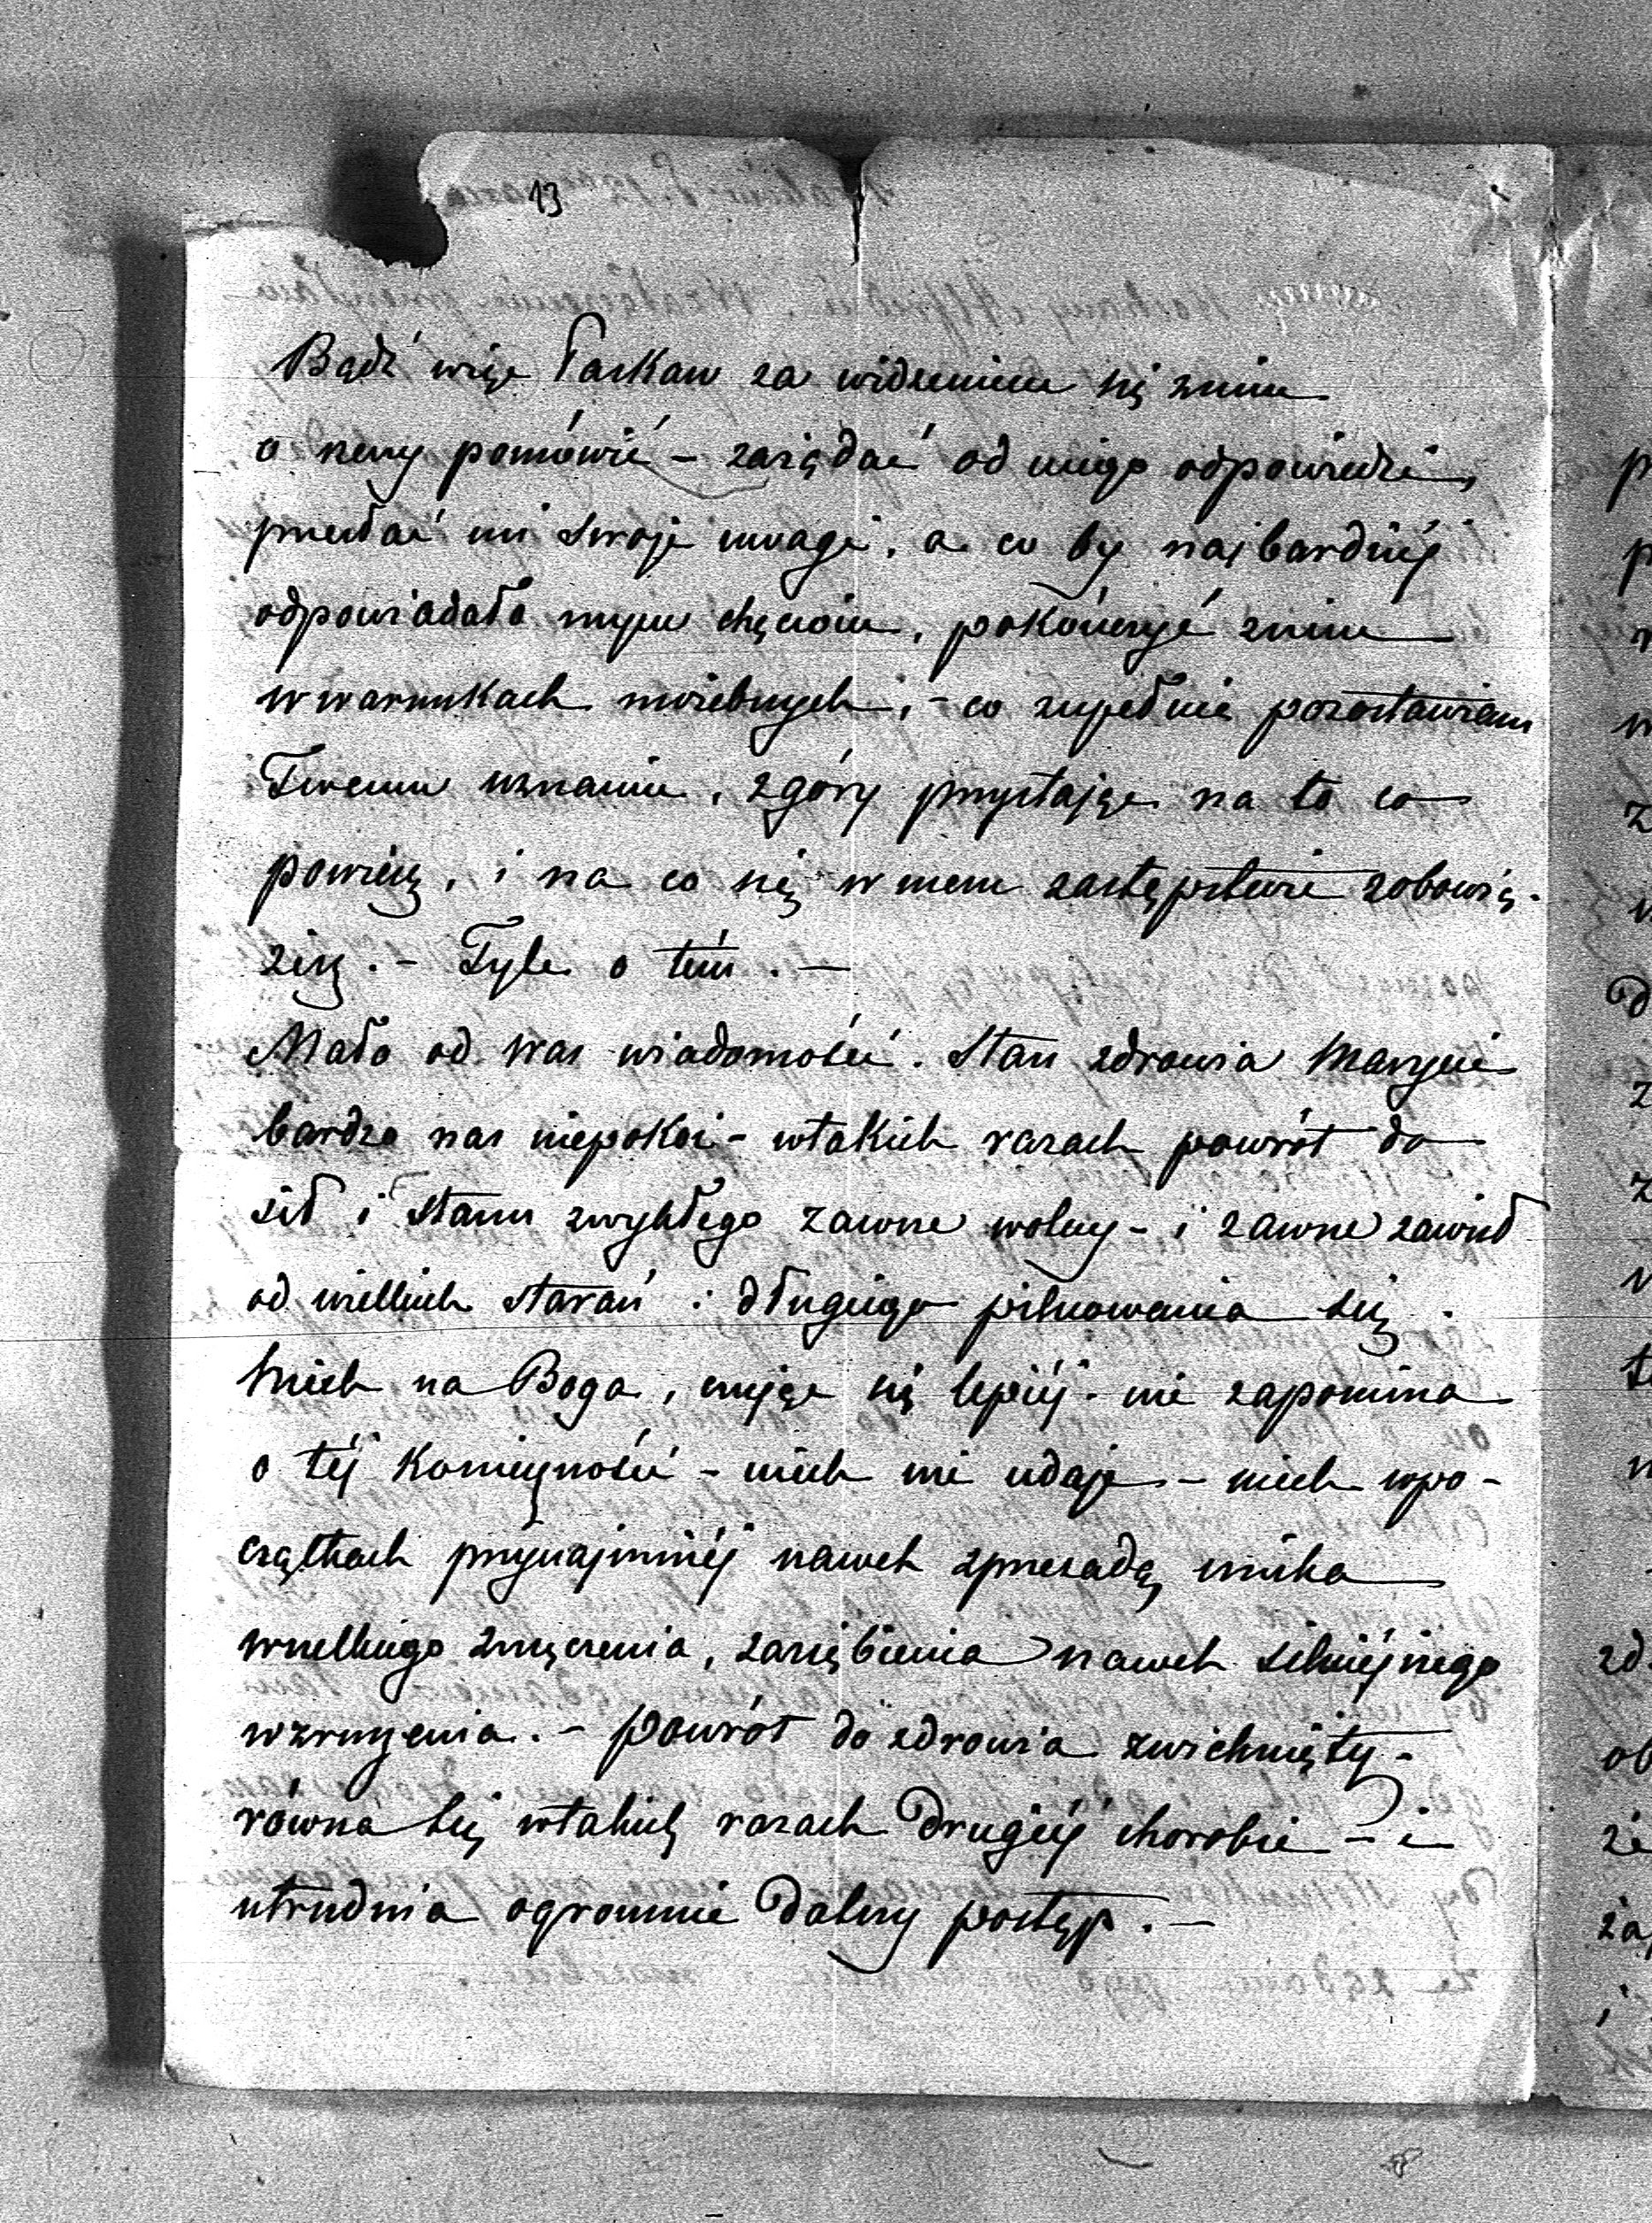 13
Bądź więc łaskaw za widzeniem się znim
o rzeczy pomówić – zażądać od niego odpowiedzi,
przesłać mi swoje uwagi, a co by najbardziéj
odpowiadało mym chęciom, pokończyć znim
w warunkach możebnych, – co zupełnie pozostawiam
Twemu uznaniu, zgóry przystając na to co
powiesz, i na co się w mem zastępstwie zobowią-
żesz. – Tyle o tém. –
Mało od Was wiadomości. Stan zdrowia Maryni
bardzo nas niepokoi – wtakich razach powrót do
sił i stanu zwykłego zawsze wolny – i zawsze zawisł
od wielkich starań i długiego pilnowania się.
Niech na Boga, czując się lepiéj nie zapomina
o téj konieczności – niech nie udaje – niech wpo-
czątkach przynajmniéj nawet zprzesadą unika
wszelkiego zmęczenia, zaziębienia nawet silniejszego
wzruszenia. – powrót do zdrowia zwichnięty –
równa się wtakich razach drugiéj chorobie – i
utrudnia ogromnie dalszy postęp. –